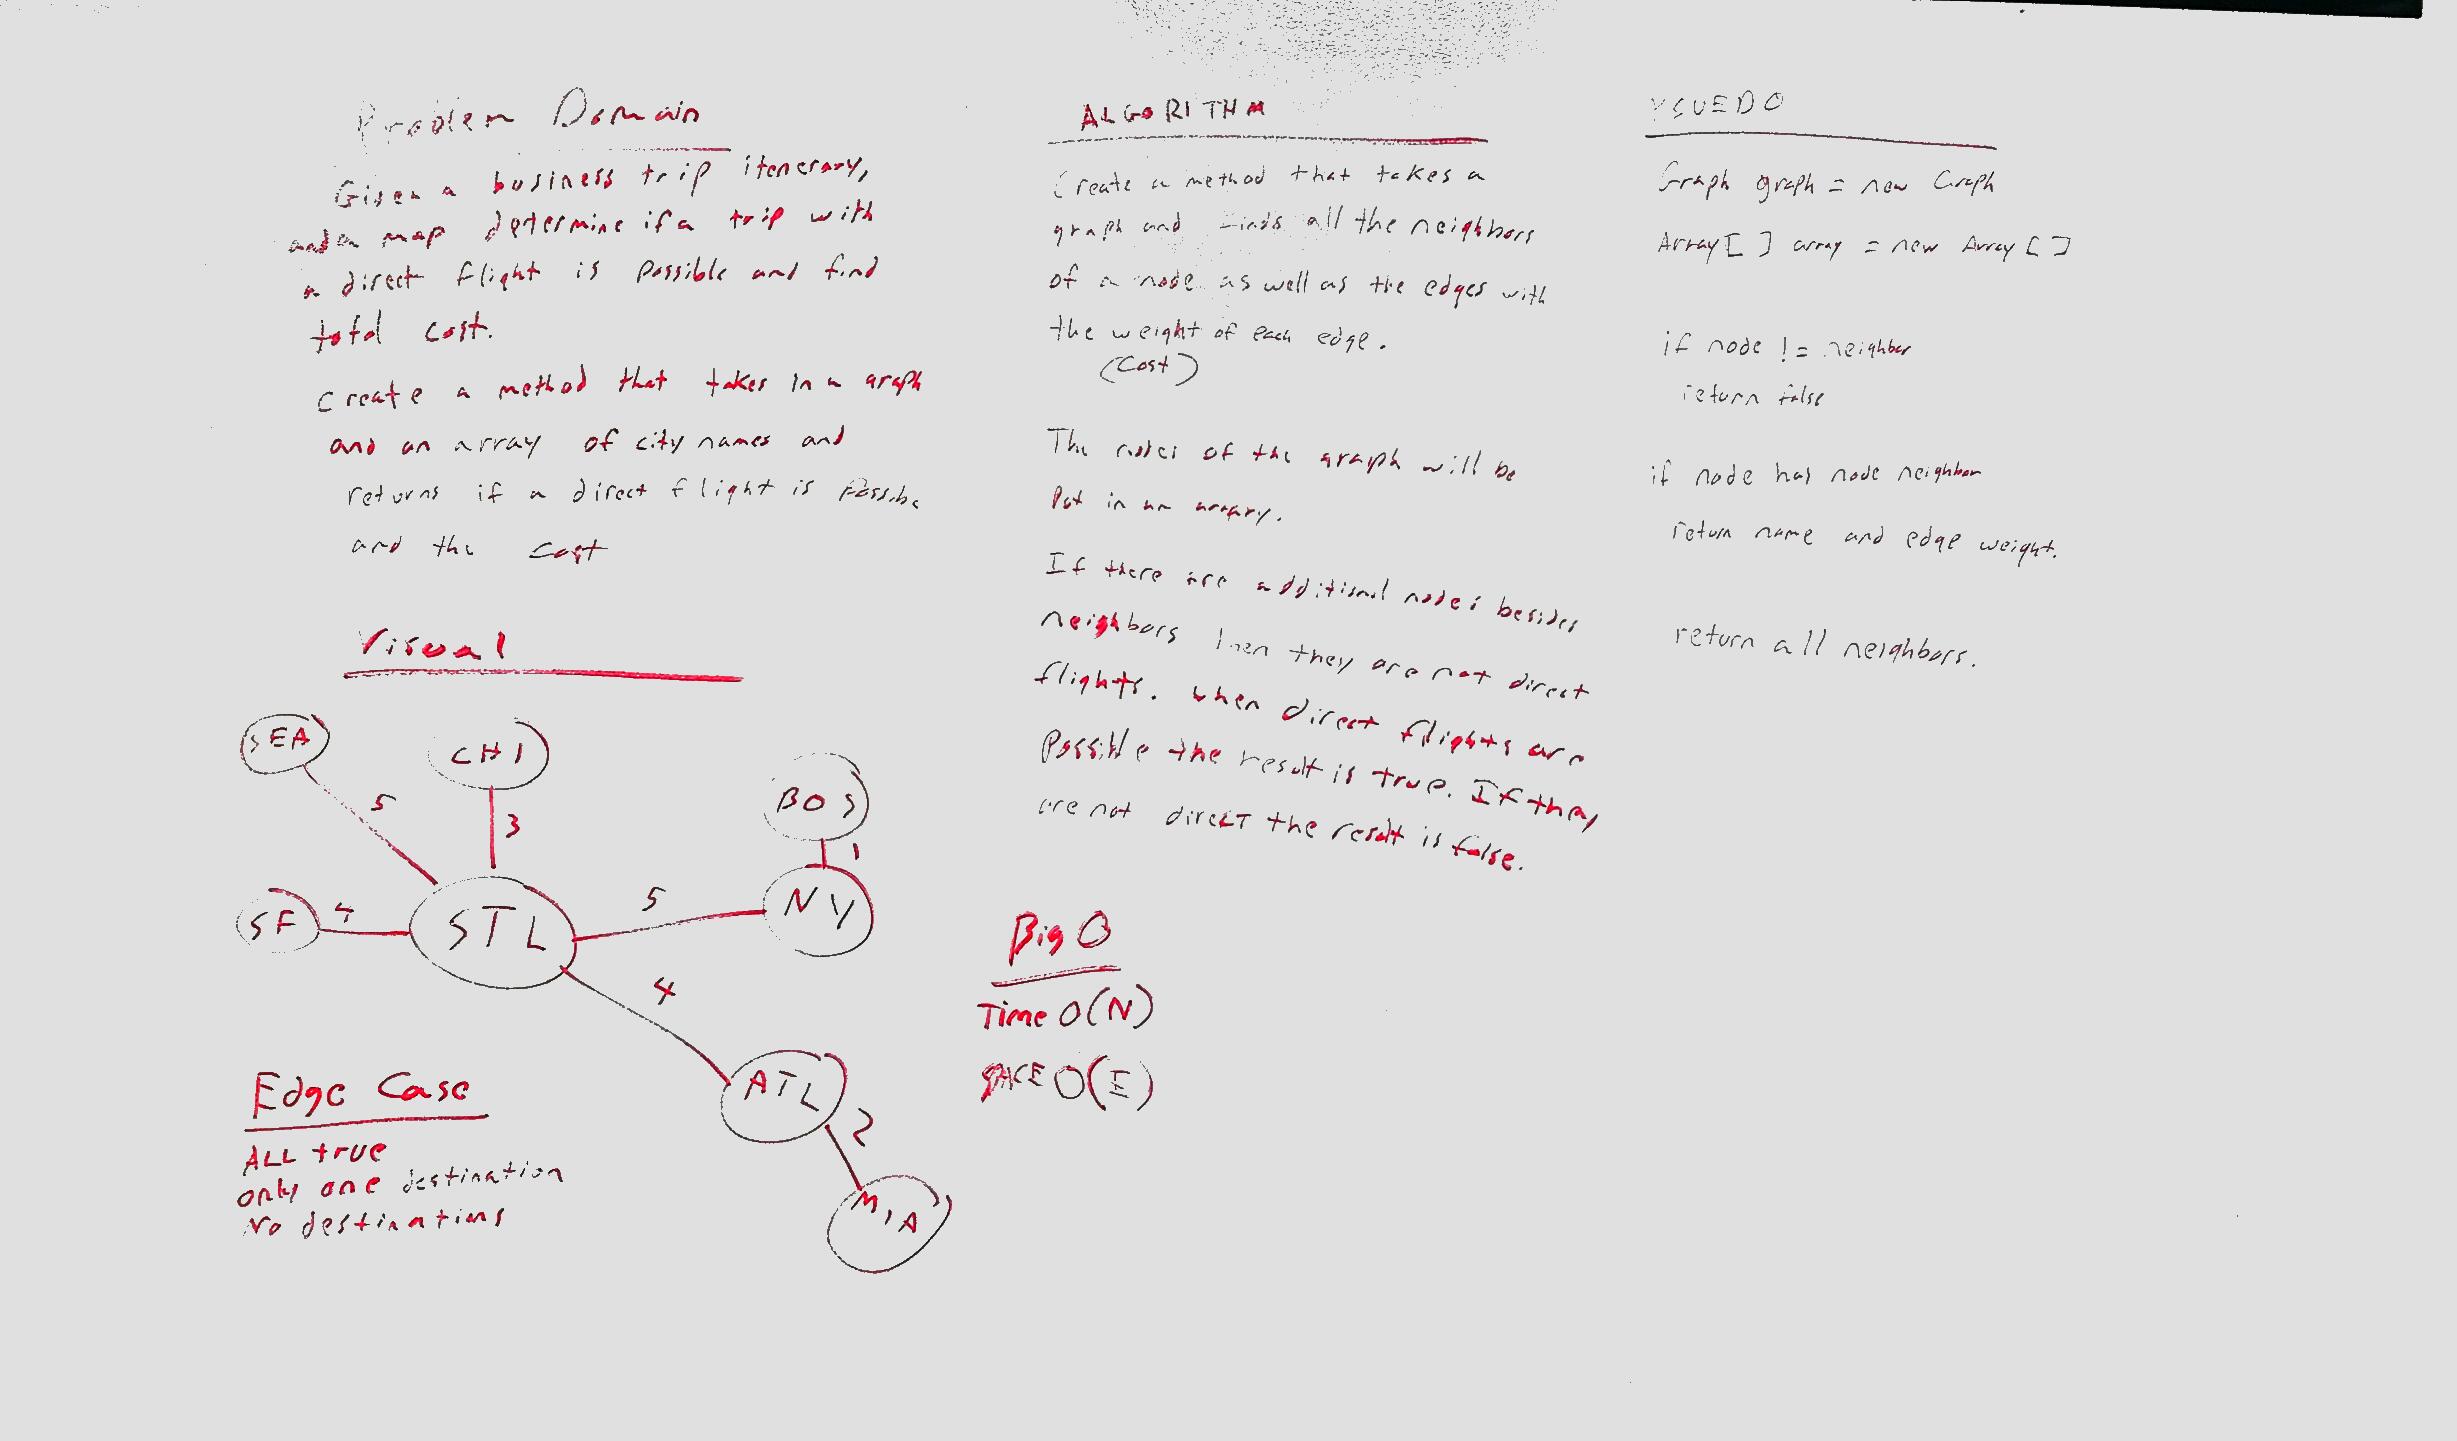 Problem Domain
Given a business trip itenerary,
and a map determine if a trip with
a direct flight is possible and find
total cost.
Create a method that takes in a graph
and an array of city names and
returns if a direct flight is Possibe
and the cost
Visual
SEA
CHI
BOS
5
3
1
SF
4
STL
5
NY
4
ATL
2
MIA
Edge Case
ALL true
only one destination
No destinations
ALGORITHM
Create a method that takes a
graph and finds all the neighbors
of a node as well as the edges with
the weight of each edge.
(Cost)
The nodes of the graph will be
Put in an array.
If there are additional nodes besides
neighbors then they are not direct
flights. When direct flights are
Possible the result is true. If they
are not direct the result is false.
Big O
Time O(N)
SPACE O(E)
PSUEDO
Graph graph = new Graph
Array[ ] array = new Array [ ]
if node != neighbor
return false
if node has node neighbor
return name and edge weight.
return all neighbors.